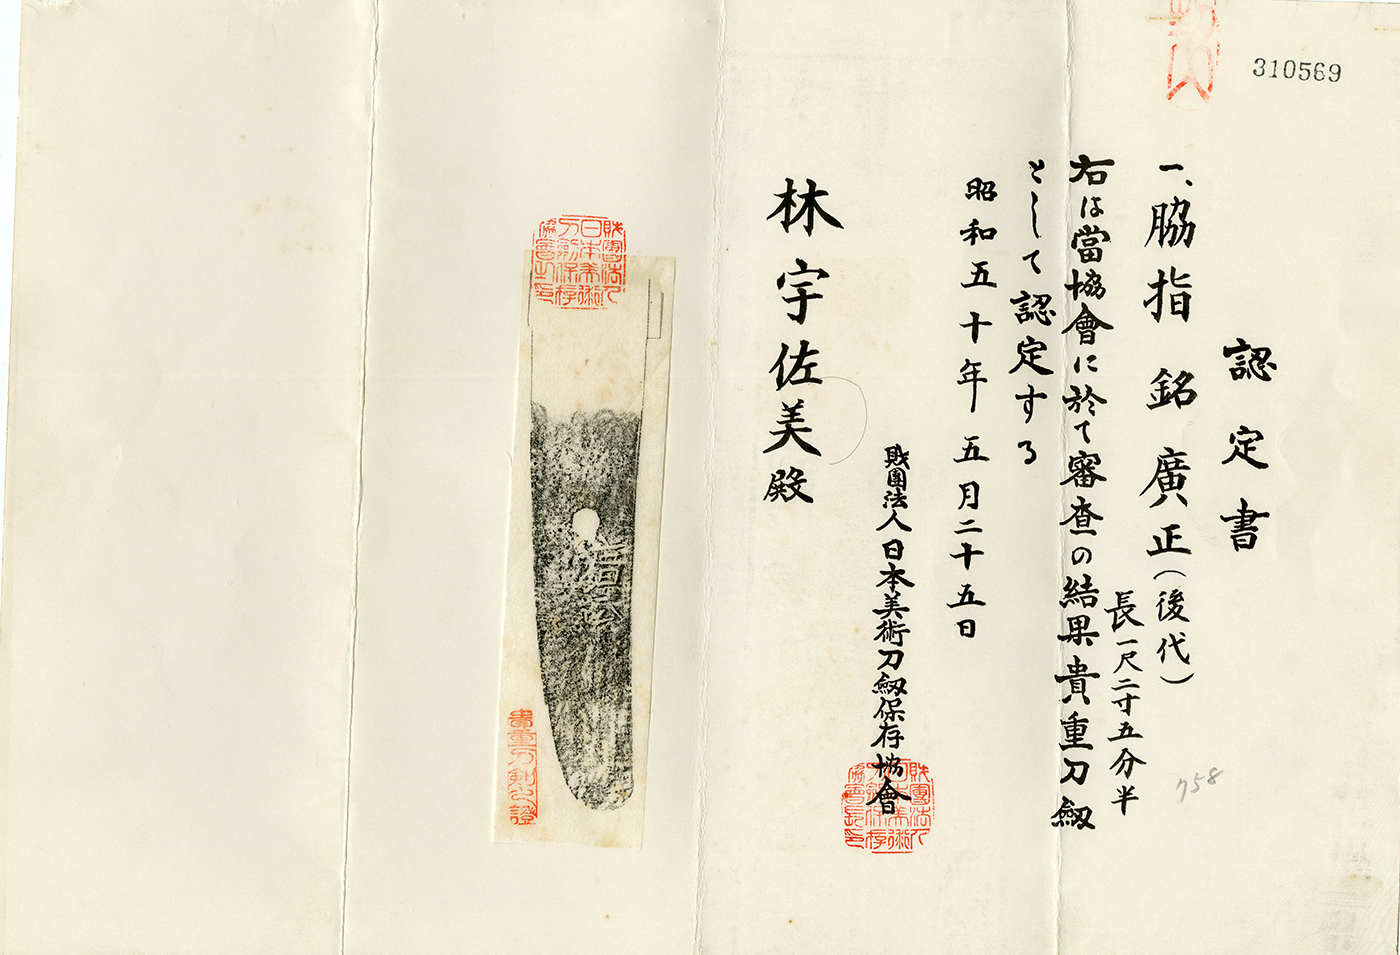 310569
認定書
一、脇指 銘 廣正(後代)
長一尺二寸五分半
右は當協會に於て審査の結果貴重刀劔
として認定する
昭和五十年五月二十五日
財團法人日本美術刀劔保存協會
財團法人日本美術刀劔保存協會長印
林宇佐美殿
財團法人日本美術刀劔保存協會之印
貴重刀剣之證
758